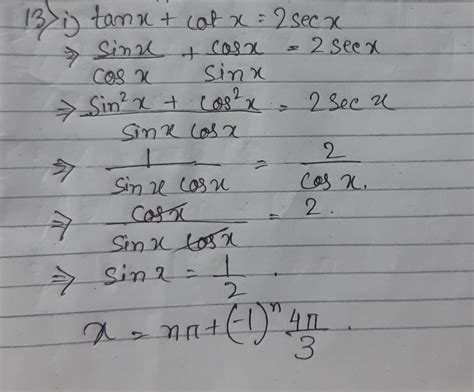 13> i) tan x + cot x = 2 sec x
⇒ sin x / cos x + cos x / sin x = 2 sec x
⇒ sin²x + cos²x / sin x cos x = 2 sec x
⇒ 1 / sin x cos x = 2 / cos x.
⇒ cos x / sin x cos x = 2.
⇒ sin x = 1 / 2 .
x = nπ + (-1)ⁿ 4π / 3 .